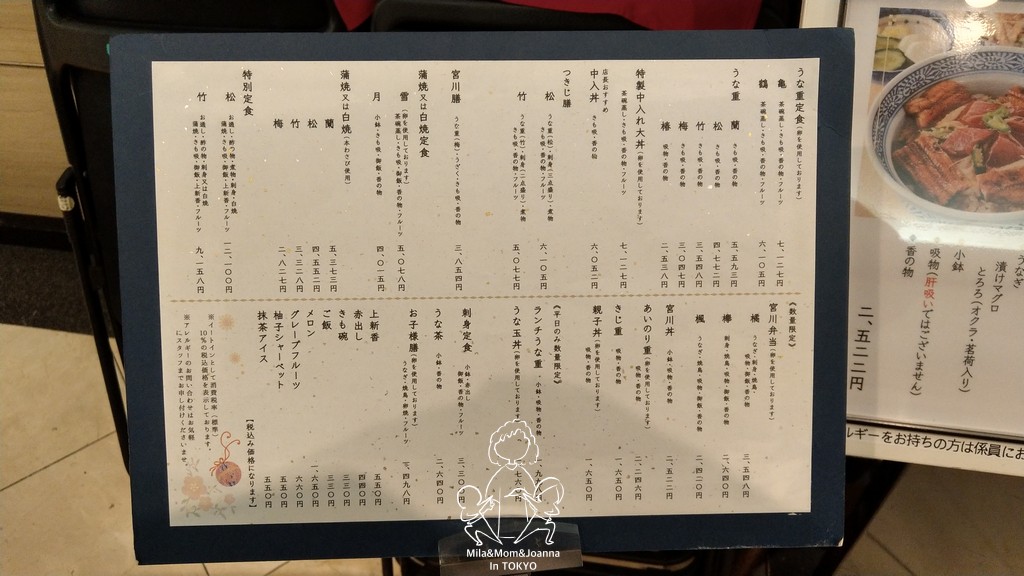 うな重定食(卵を使用しております)
亀 茶碗蒸し・きも吸・香の物・フルーツ 七、一二七円
鶴 茶碗蒸し・きも吸・香の物・フルーツ 六、一〇五円
うな重
蘭 きも吸・香の物 五、五九三円
松 きも吸・香の物 四、五七二円
竹 きも吸・香の物 三、五四八円
梅 吸物・香の物 三、〇四七円
椿 吸物・香の物 二、五三八円
特製中入れ大丼(卵を使用しております)
茶碗蒸し・きも吸・香の物・フルーツ 七、一二七円
店長おすすめ
中入丼 きも吸・香の物 六、〇五二円
つきじ膳
松 うな重(松)・刺身(三点盛り)・煮物
きも吸・香の物・フルーツ 六、一〇五円
竹 うな重(竹)・刺身(二点盛り)・煮物
きも吸・香の物 五、〇七七円
宮川膳 うな重(梅)・うざく・きも吸・香の物 三、八五四円
蒲焼又は白焼定食
雪 (卵を使用しております)
茶碗蒸し・きも吸・御飯・香の物・フルーツ 五、〇七八円
月 小鉢・きも吸・御飯・香の物 四、〇一五円
蒲焼又は白焼(本わさび使用)
蘭 五、三七三円
松 四、五五二円
竹 三、三二八円
梅 二、八二七円
特別定食
松 お通し・酢の物・煮物・刺身・白焼
蒲焼・きも吸・御飯・上新香・フルーツ 一二、一〇〇円
竹 お通し・酢の物・刺身又は白焼
蒲焼・きも吸・御飯・上新香・フルーツ 九、一五八円
《数量限定》
宮川弁当(卵を使用しております)
橘 うなぎ・刺身・焼鳥・
吸物・御飯・香の物 三、一五四八円
欅 刺身・焼鳥・吸物・御飯・香の物
楓 うなぎ・焼鳥・吸物・御飯・香の物
宮川丼 小鉢・吸物・香の物 二、五二二円
あいのり重(卵を使用しております)
吸物・香の物 二、二四六円
きじ重 吸物・香の物 一、六五〇円
親子丼(卵を使用しております)
吸物・香の物 一、六五〇円
《平日のみ数量限定》
ランチうな重 小鉢・吸物・香の物
うな玉丼(卵を使用しております)
刺身定食 小鉢・赤出し
御飯・香の物・フルーツ
うな茶 小鉢・香の物 二、六四〇円
お子様膳(卵を使用しております)
うなぎ・焼鳥・卵焼・フルーツ 二、四九八円
上新香 五五〇円
赤出し 四四〇円
きも碗 三三〇円
ご飯 三三〇円
メロン 一、六五〇円
グレープフルーツ 六六〇円
柚子シャーベット 五五〇円
抹茶アイス 五五〇円
【税込み価格になります】
※イートインとして消費税率(標準)
10%の税込価格を表示しております。
※アレルギーのお問い合わせはお気軽
にスタッフまでお申し付けくださいませ。
うなぎ
漬けマグロ
とろろ(オクラ・茗荷入り)
小鉢
吸物(肝吸いではございません)
香の物
二、五二二円
ルギーをお持ちの方は係員にお
Mila&Mom&Joanna
In TOKYO